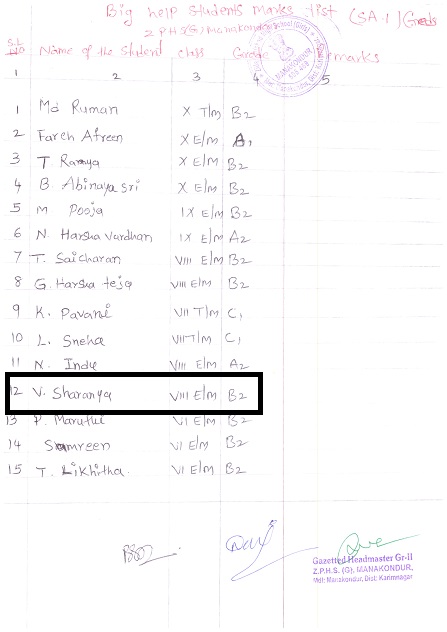 Big help students marks list (SA-1) Grads
Z P H S (G) Manakondur
S.L No Name of the Student class Grade Remarks
1 2 3 4 5
1 Md Ruman X T/m B2
2 Fareh Afreen X E/m A1
3 T. Ramya X E/m B2
4 B. Abinaya sri X E/m B2
5 M Pooja IX E/m B2
6 N. Harsha vardhan IX E/m A2
7 T. Saicharan VIII E/m B2
8 G. Harsha teja VIII E/m B2
9 K. Pavani VII T/m C1
10 L. Sneha VII T/m C1
11 N. Indu VIII E/m A2
12 V. Sharanya VIII E/m B2
13 P. Maruthi VI E/m B2
14 Samreen VI E/m B2
15 T. Likhitha. VI E/m B2
Gazetted Headmaster Gr-II
Z.P.H.S. (G). MANAKONDUR,
Mdl: Manakondur, Dist: Karimnagar